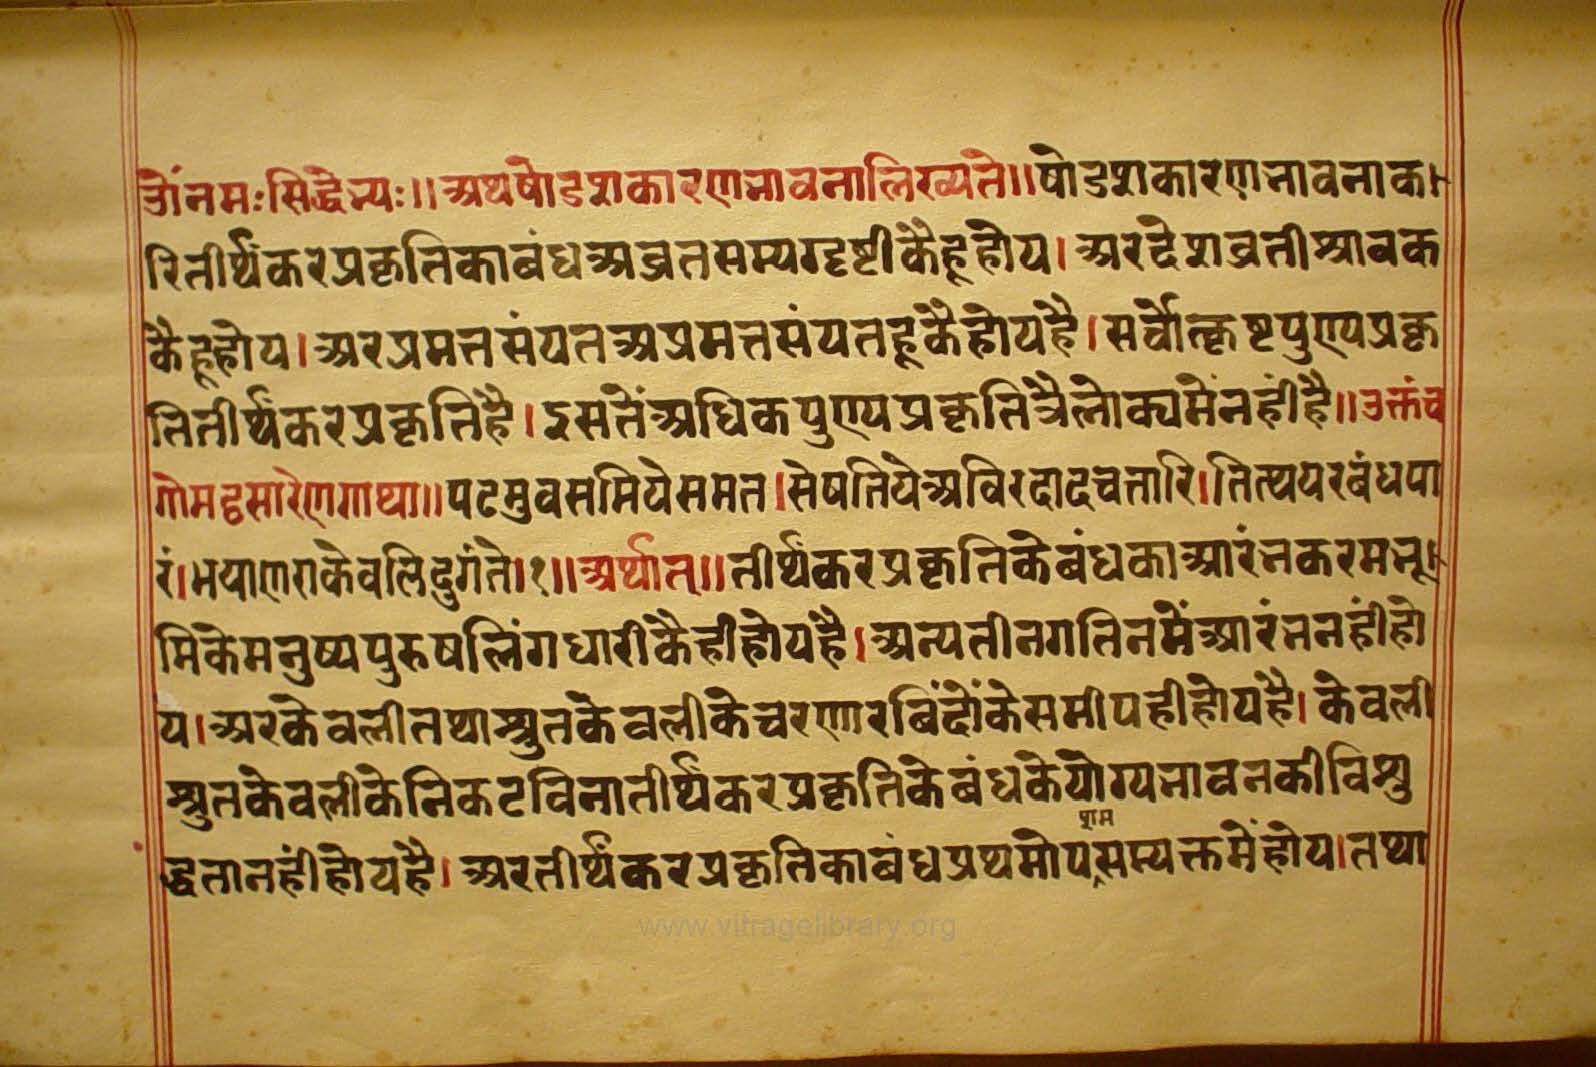 ओंनमःसिद्धेभ्यः॥अथषोडशकारणभावनालिख्यते॥षोडशकारणभावनाक
रितीर्थंकरप्रकृतिकाबंधअव्रतसम्यग्दृष्टीकैहूहोय।अरदेशव्रतीश्रावक
कैहूहोय।अरप्रमत्तसंयतअप्रमत्तसंयतहूकैहोयहै।सर्वोत्कृष्टपुण्यप्रकृ
तितीर्थंकरप्रकृतिहै।इसतेंअधिकपुण्यप्रकृतित्रैलोक्यमेंनहींहै॥उक्तंच
गोमट्टसारेणगाथा॥पढमुवसमियेसमत।सेषतियेअविरदादचत्तारि।तित्थयरबंधपा
रं।भयाणराकेवलिदुगंते।१॥अर्थात्॥तीर्थंकरप्रकृतिकेबंधकाआरंभकरमभू
मिकेमनुष्यपुरुषलिंगधारीकैहीहोयहै।अन्यतीनगतिनमेंआरंभनहींहो
य।अरकेवलीतथाश्रुतकेवलीकेचरणारबिंदोंकेसमीपहीहोयहै।केवली
श्रुतकेवलीकेनिकटविनातीर्थंकरप्रकृतिकेबंधकेयोग्यभावनकीविशु
द्धतानहींहोयहै।अरतीर्थंकरप्रकृतिकाबंधप्रथमोपशमसम्यक्तमेंहोय।तथा
www.vitragelibrary.org